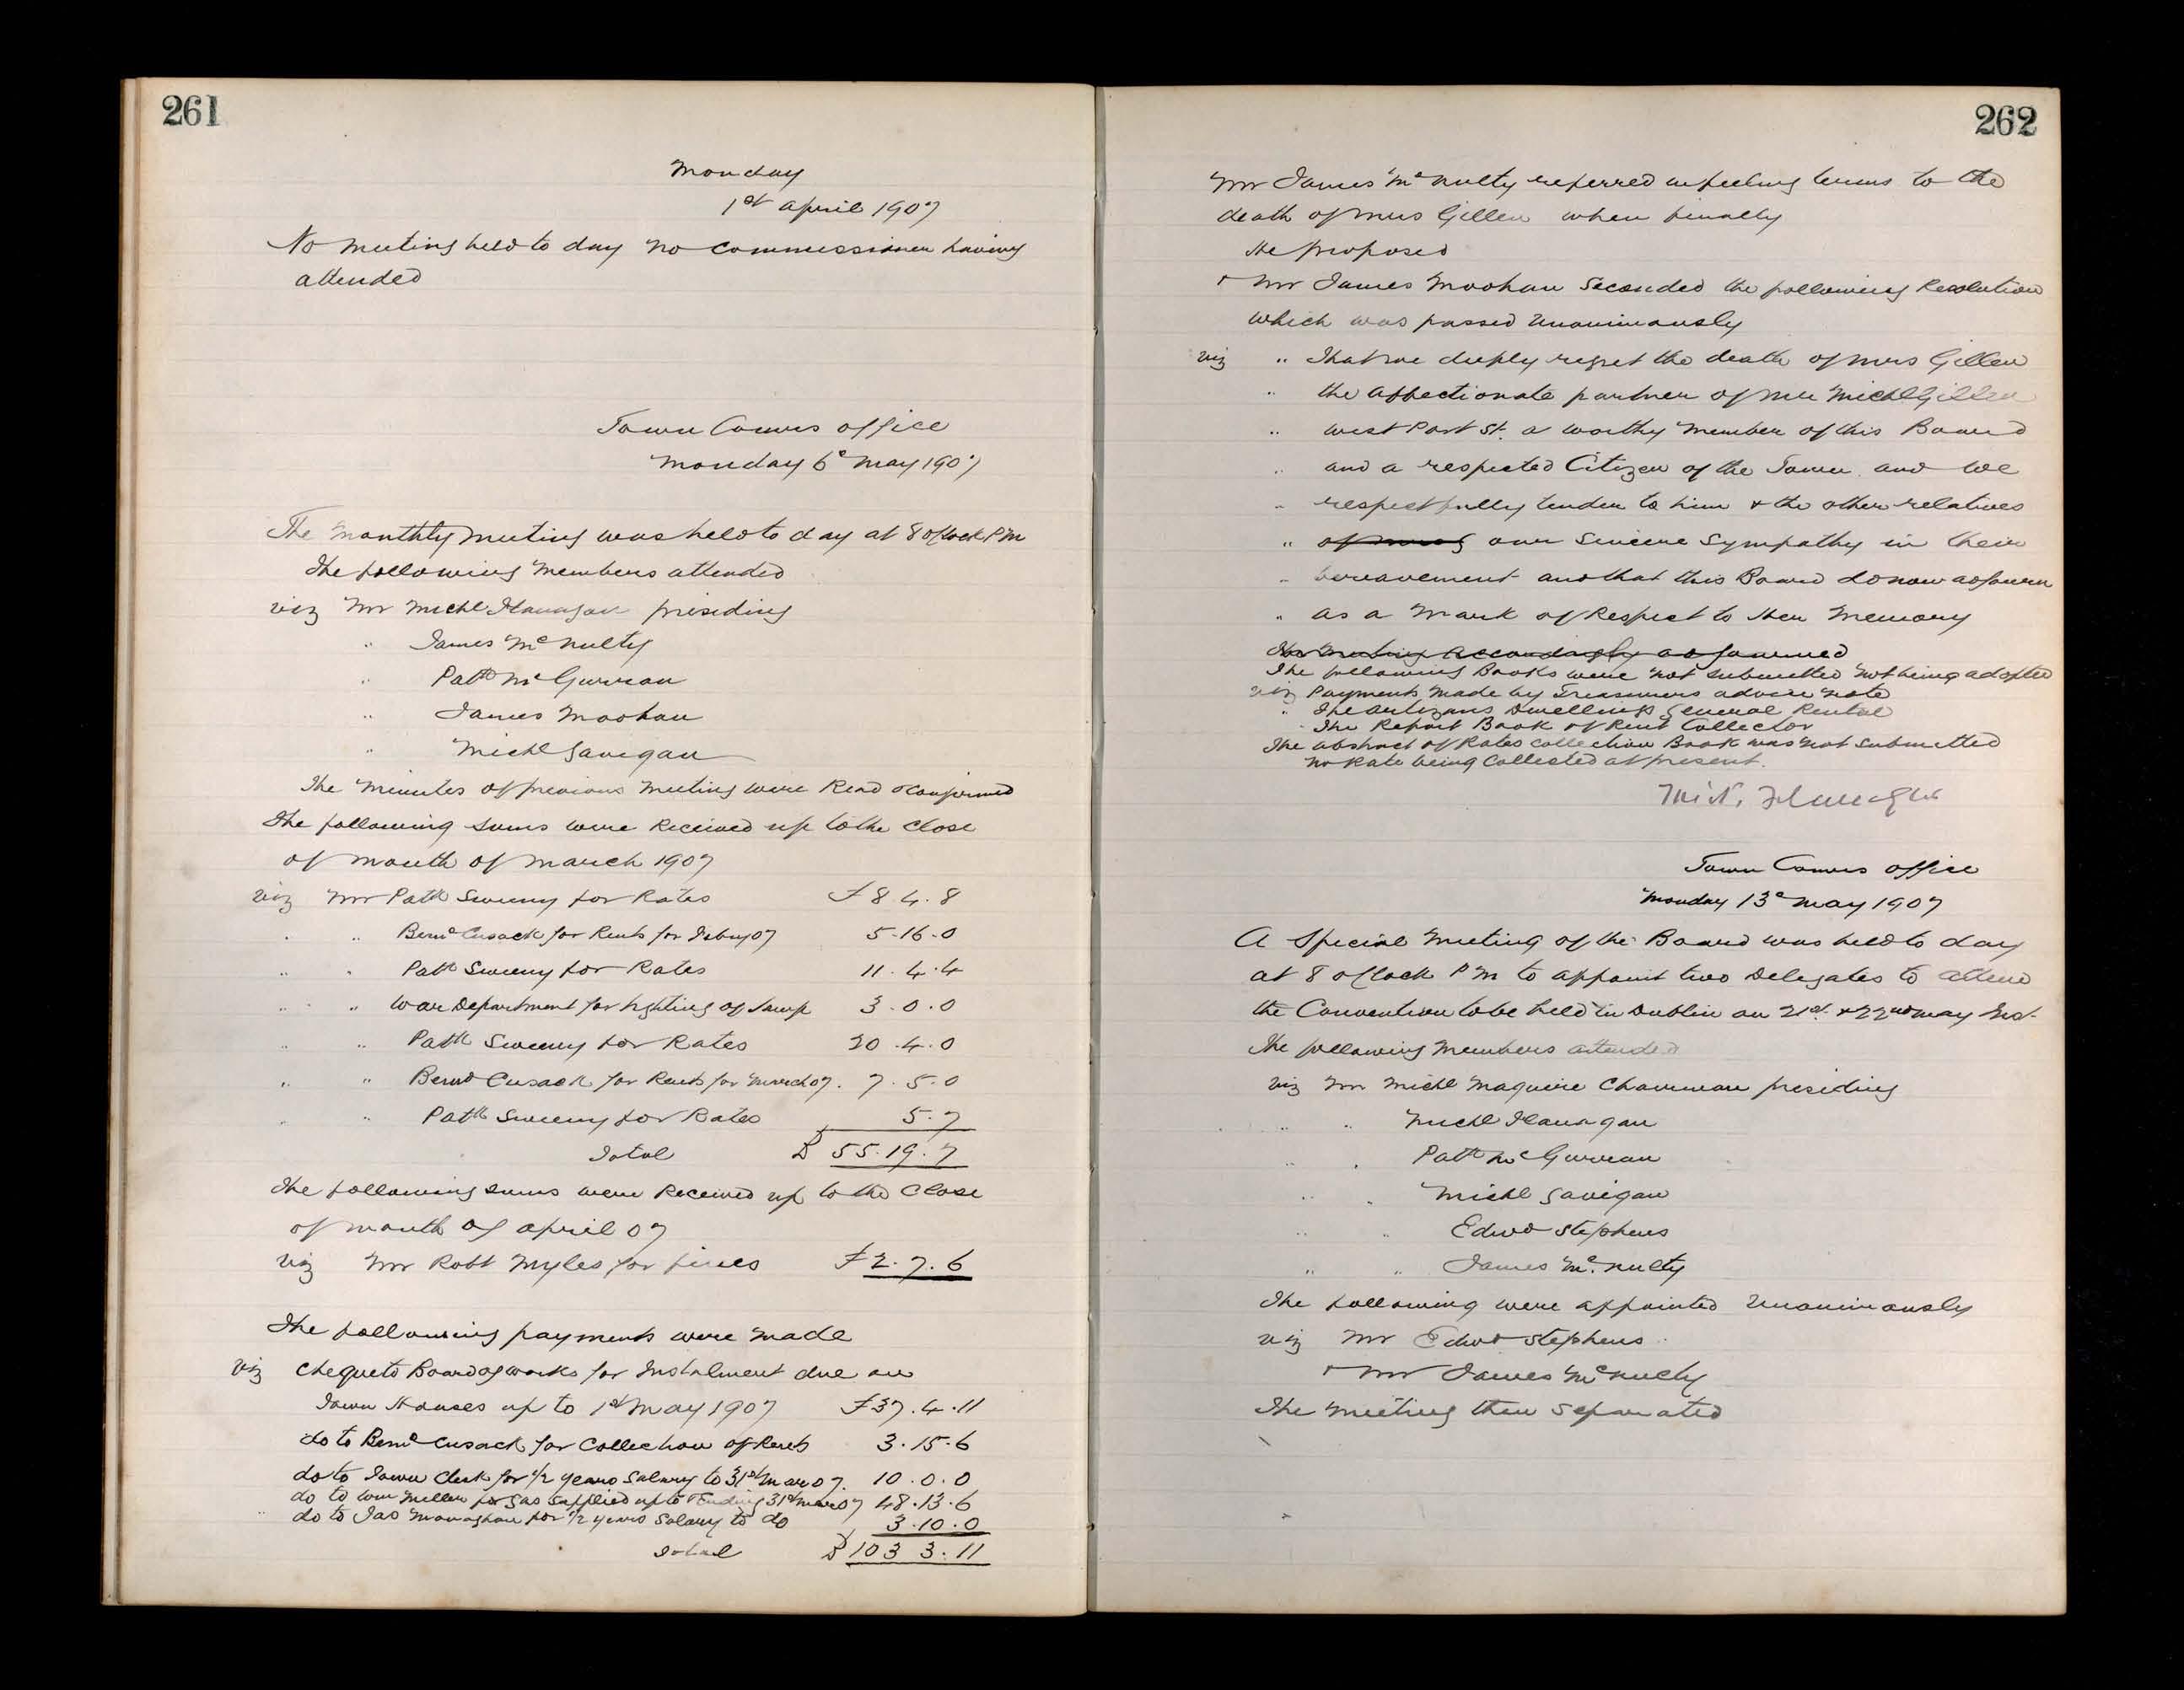 261
Monday
1st April 1907
No meeting held to day no Commissioner having
attended
Town Comrs office
Monday 6e May 1907
The monthly meeting was held to day at 8 oClock P M
The following members attended
viz Mr Michl Flanagan presiding
" James McNulty
" Patk McGurran
" James Moohan
" Michl Gavigan
The minutes of previous meeting were Read & Confirmed
The following sums were Received up to the Close
of month of March 1907
viz Mr Patk Sweeny for Rates £8.4.8
" " Bernd Cusack for Rents for Febuy 07 5.16.0
" " Patk Sweeny for Rates 11.4.4
" " War Department for lighting of Lamp 3.0.0
" " Patk Sweeny for Rates 20.4.0
" " Bernd Cusack for Rents for March 07. 7.5.0
" " Patk Sweeny for Rates 5.7
Total £55.19.7
The following sums were Received up to the Close
of month of April 07
viz Mr Robt Myles for fines £2.7.6
The following payments were made
viz Cheque to Board of Works for Instalment due on
Town Houses up to 1st May 1907 £37.4.11
do to Bernd Cusack for Collection of Rents 3.15.6
do to Town Clerk for 1/2 years Salary to 31st Mar 07. 10.0.0
do to Wm Mellon for gas supplied up to & Ending 31st Mar 07 48.13.6
do to Jas Monaghan for 1/2 years Salary to do 3.10.0
Total £103 3.11
262
Mr James McNulty referred in feeling terms to the
death of Mrs Gillen when finally
He proposed
& Mr James Moohan Seconded the following Resolution
which was passed Unanimously
viz " That we deeply regret the death of Mrs Gillen
" the affectionate partner of Mr Michl Gillen
" West Port St. a worthy member of this Board
" and a respected Citizen of the Town and We
" respectfully tender to him & the other relatives
" our Sincere Sympathy in their
" bereavement and that this Board do now adjourn
" as a Mark of Respect to Her Memory
The meeting accordingly adjourned
The following Books were not submitted not being adopted
viz Payments made by Treasurers advice note
" The Artizans Dwellings General Rental
" The Report Book of Rent Collector
The abstract of Rates Collection Book was not submitted
no Rate being Collected at present.
Mich. Flanagan
Town Comrs office
Monday 13e May 1907
A Special Meeting of the Board was held to day
at 8 oClock P M to appoint two Delegates to attend
the Convention to be held in Dublin on 21st. & 22nd May Inst.
The following Members attended
viz Mr Michl Maguire Chairman presiding
" " Michl Flanagan
" " Patk McGurran
" " Michl Gavigan
" " Edwd Stephens
" " James Mc.Nulty
The following were appointed Unanimously
viz Mr Edwd Stephens
& Mr James McNulty
The meeting then Separated